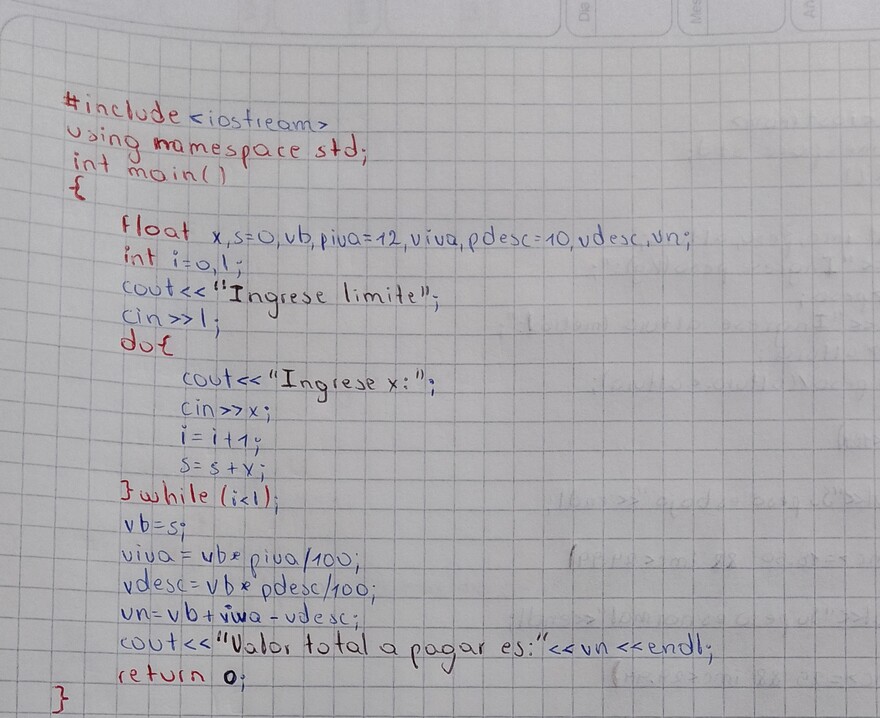 #include <iostream>
using namespace std;
int main()
{
float x,s=0,vb,piva=12,viva,pdesc=10,vdesc,vn;
int i=0,l;
cout<<"Ingrese limite";
cin>>l;
do{
cout<<"Ingrese x:";
cin>>x;
i=i+1;
s=s+x;
}while(i<l);
vb=s;
viva=vb*piva/100;
vdesc=vb*pdesc/100;
vn=vb+viva-vdesc;
cout<<"Valor total a pagar es:"<<vn<<endl;
return 0;
}